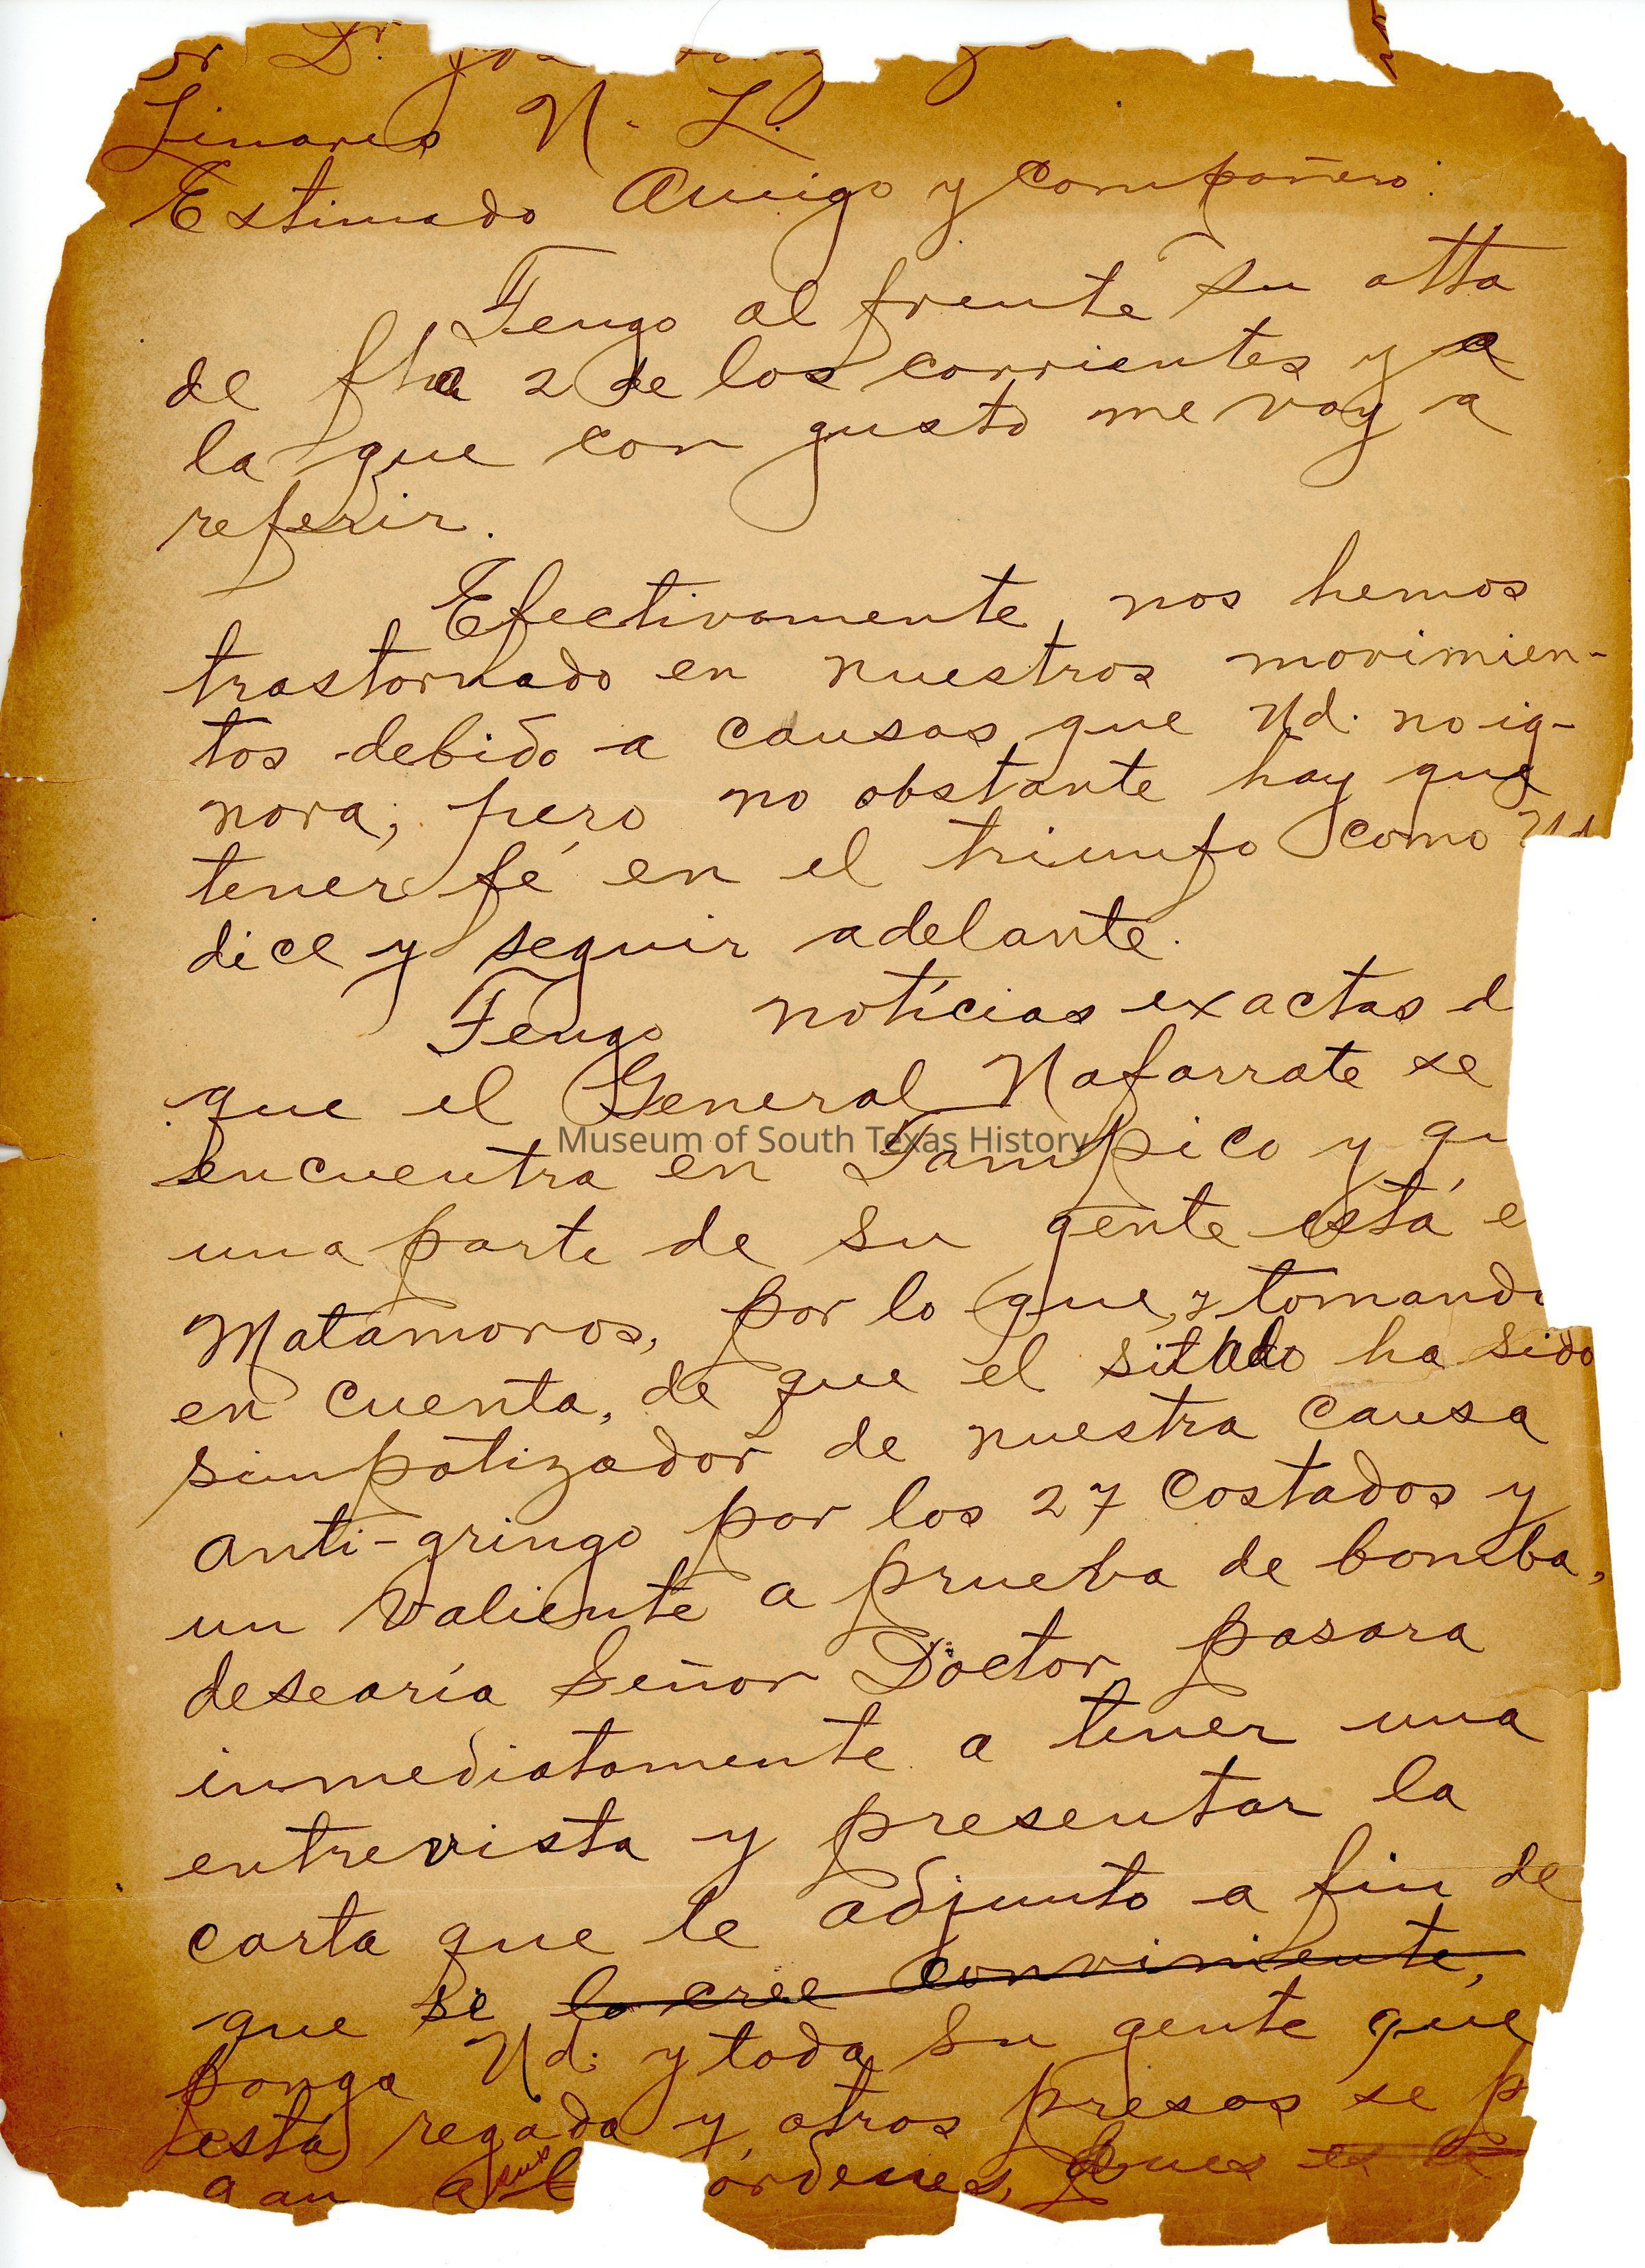 Sr Dr.
Linares N. L.
Estimado Amigo y Compañero:
Tengo al frente su atta
de fha 2 de los corrientes y a
la que con gusto me voy a
referir.
Efectivamente, nos hemos
trastornado en nuestros movimien-
tos debido a causas que Ud. no ig-
nora; pero no obstante hay que
tener fé en el triunfo como Ud
dice y seguir adelante.
Tengo noticias exactas d
que el General Nafarrate se
Museum of South Texas History
encuentra en Tampico y qu
una parte de su gente está e
Matamoros, por lo que, y tomando
en cuenta, de que el sitado ha sido
simpatizador de nuestra causa
anti-gringo por los 27 costados y
un valiente a prueba de bomba,
desearía Señor Doctor pasara
inmediatamente a tener una
entrevista y presentar la
carta que le adjunto a fin de
que si lo cree conviniente,
ponga Ud. y toda su gente que
está regada y otros presos se p
gan a sus órdenes, pues es